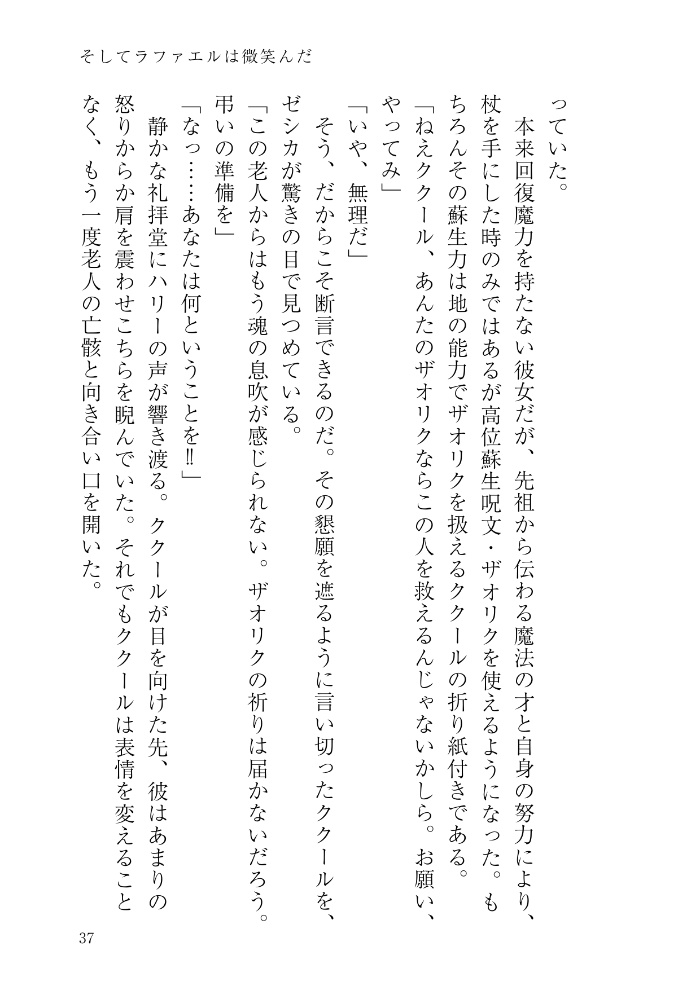 そしてラファエルは微笑んだ
っていた。
　本来回復魔力を持たない彼女だが、先祖から伝わる魔法の才と自身の努力により、
杖を手にした時のみではあるが高位蘇生呪文・ザオリクを使えるようになった。も
ちろんその蘇生力は地の能力でザオリクを扱えるククールの折り紙付きである。
「ねえククール、あんたのザオリクならこの人を救えるんじゃないかしら。お願い、
やってみ」
「いや、無理だ」
　そう、だからこそ断言できるのだ。その懇願を遮るように言い切ったククールを、
ゼシカが驚きの目で見つめている。
「この老人からはもう魂の息吹が感じられない。ザオリクの祈りは届かないだろう。
弔いの準備を」
「なっ……あなたは何ということを‼」
　静かな礼拝堂にハリーの声が響き渡る。ククールが目を向けた先、彼はあまりの
怒りからか肩を震わせこちらを睨んでいた。それでもククールは表情を変えること
なく、もう一度老人の亡骸と向き合い口を開いた。
37